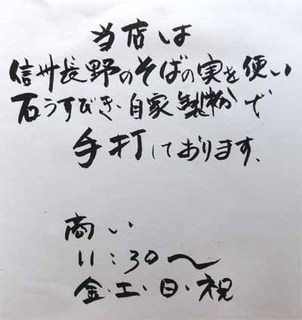 当店は
信州長野のそばの実を使い
石うすびき、自家製粉で
手打しております。
商い
11:30〜
金・土・日・祝